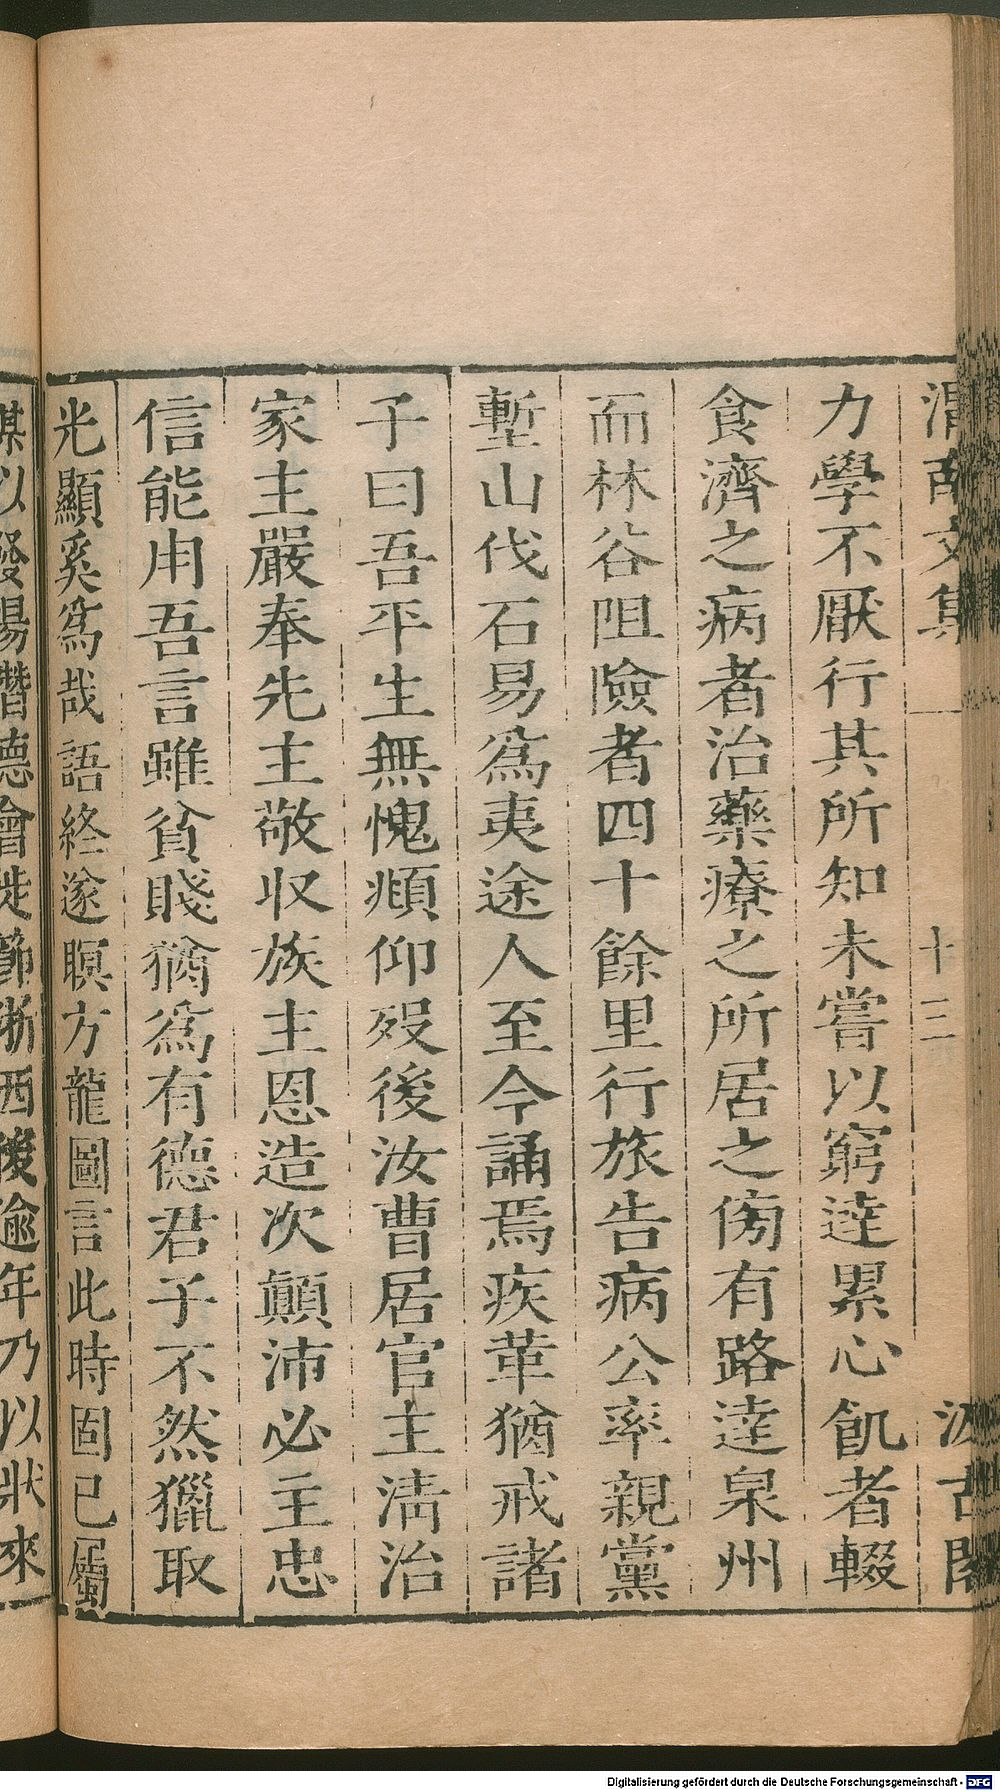 渭南文集 十三 汲古閣
力學不厭行其所知未嘗以窮達累心飢者輟
食濟之病者治藥療之所居之傍有路達泉州
而林谷阻險者四十餘里行旅告病公率親黨
塹山伐石易爲夷途人至今誦焉疾革猶戒諸
子曰吾平生無愧頫仰歿後汝曹居官主淸治
家主嚴奉先主敬収族主恩造次顛沛必主忠
信能用吾言雖貧賤猶爲有德君子不然獵取
光顯奚爲哉語終遂瞑方龍圖言此時固已屬
謀以發揚潛德會徙節浙西後逾年乃以狀來
Digitalisierung gefördert durch die Deutsche Forschungsgemeinschaft - DFG